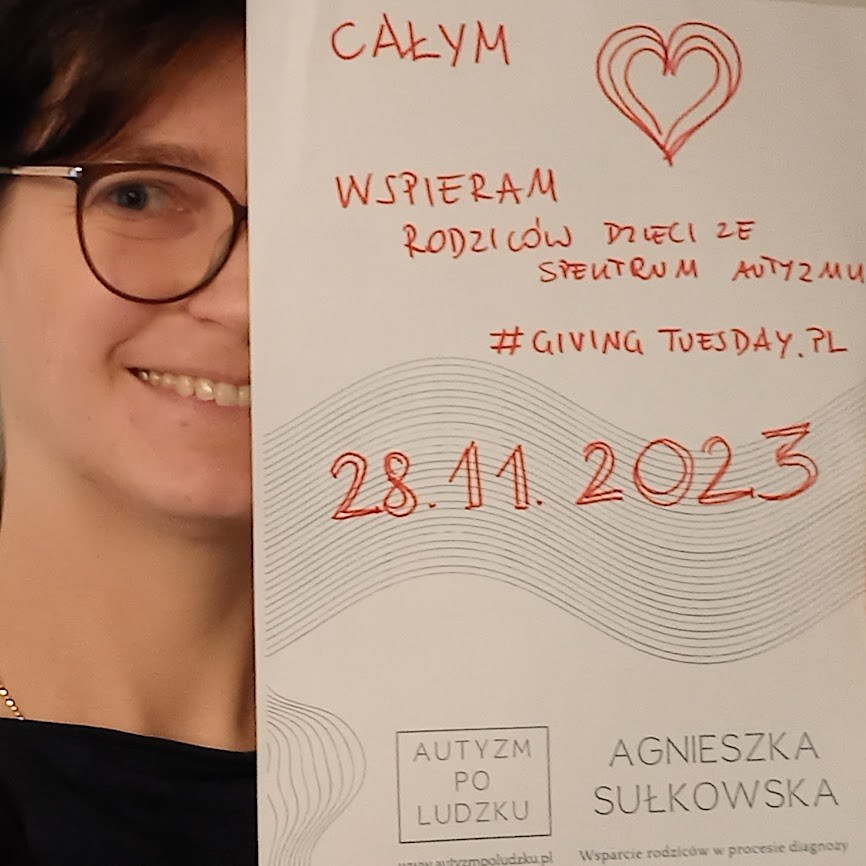 CAŁYM
WSPIERAM
RODZICÓW DZIECI ZE
SPEKTRUM AUTYZMU
#GIVING TUESDAY.PL
28.11.2023
AUTYZM
PO
LUDZKU
www.autyzmpoludzku.pl
AGNIESZKA
SUŁKOWSKA
Wsparcie rodziców w procesie diagnozy